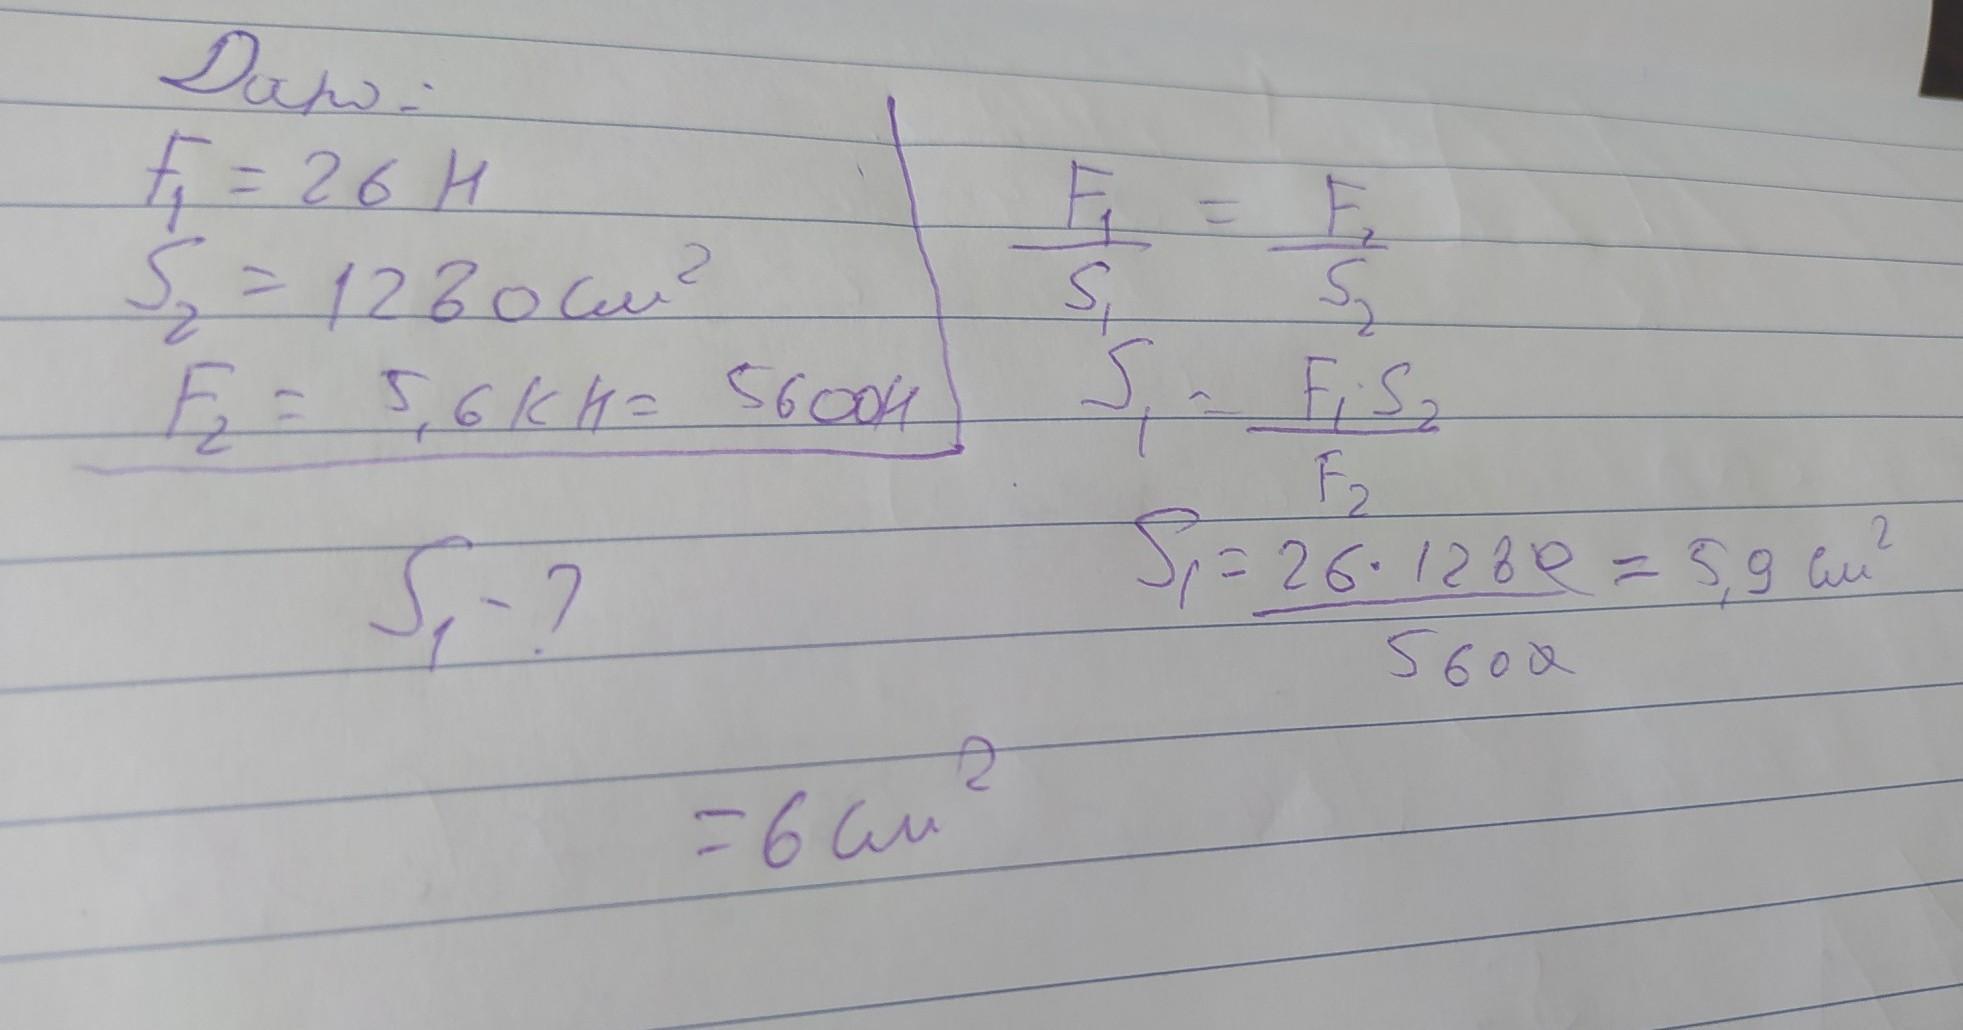 Дано:
F₁ = 26 Н
S₂ = 1280 см²
F₂ = 5,6 кН = 5600Н
S₁ - ?
F₁/S₁ = F₂/S₂
S₁ = F₁·S₂/F₂
S₁ = 26·1280/5600 = 5,9 см²
= 6 см²